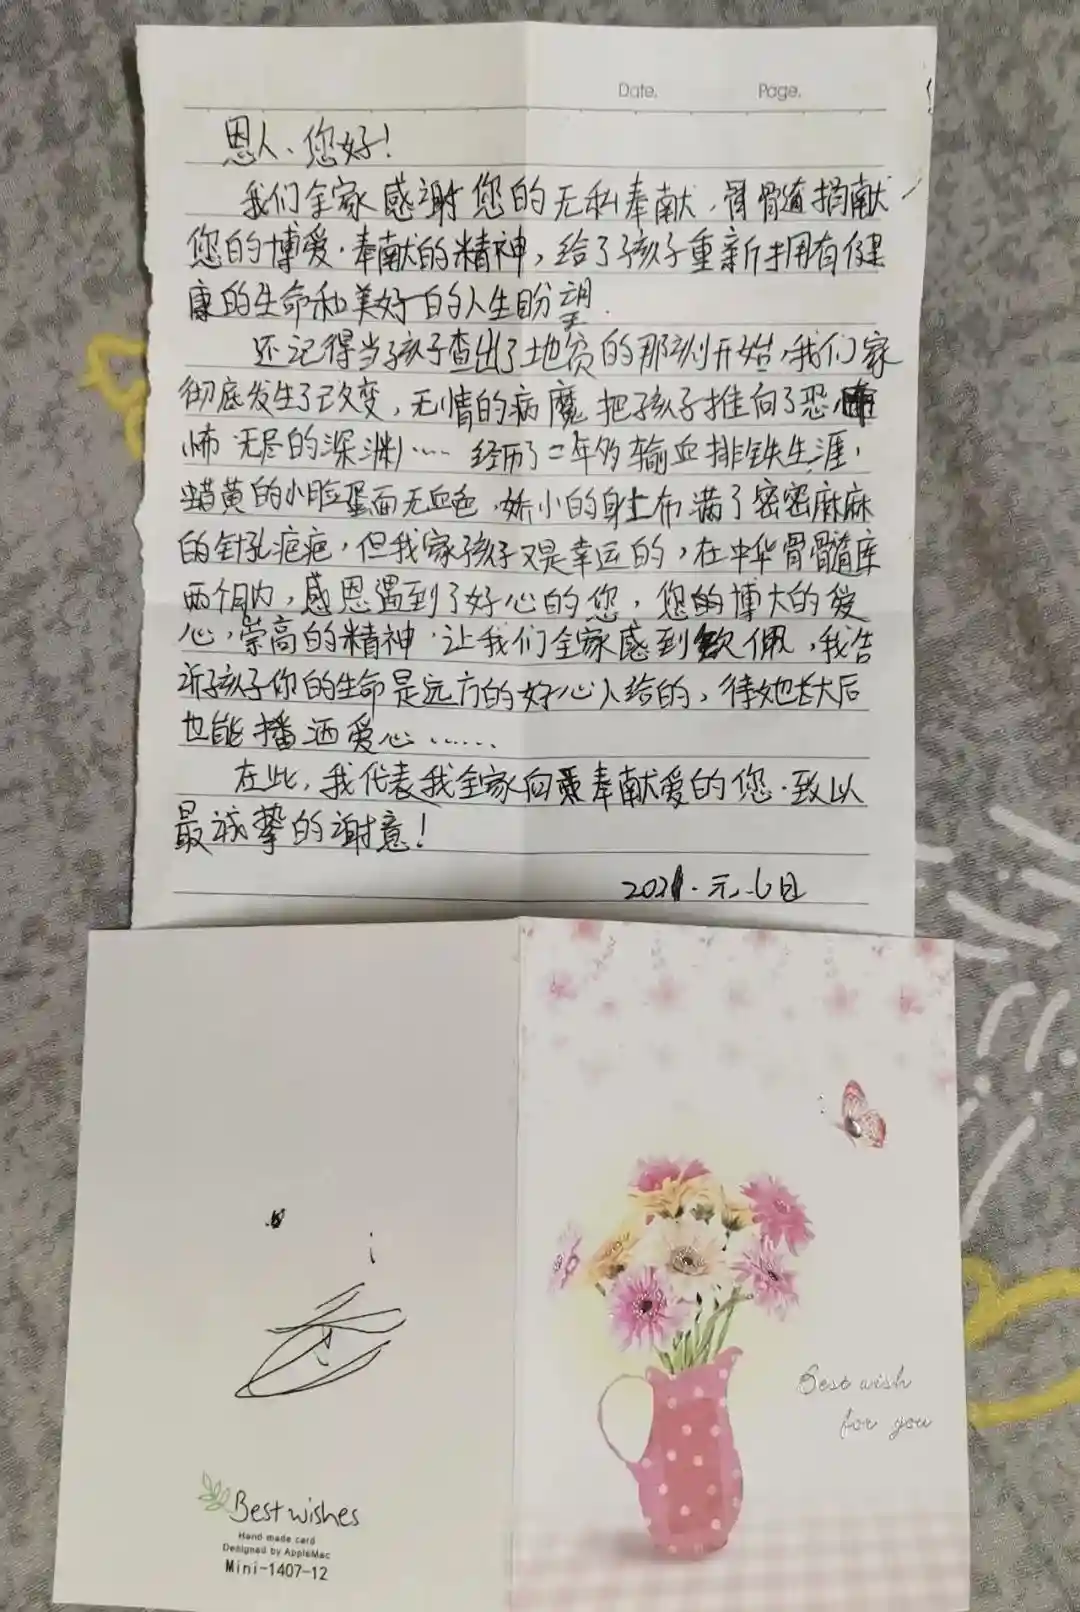 Date.
Page.
恩人、您好!
我们全家感谢您的无私奉献,骨髓捐献
您的博爱.奉献的精神,给了孩子重新拥有健
康的生命和美好的人生盼望.
还记得当孩子查出了地贫的那刻开始,我们家
彻底发生了改变,无情的病魔把孩子推向了恐
怖无尽的深渊…… 经历了二年多输血排铁生涯,
蜡黄的小脸蛋面无血色.娇小的身上布满了密密麻麻
的针孔疤疤,但我家孩子又是幸运的,在中华骨髓库
两个月内,感恩遇到了好心的您,您的博大的爱
心,崇高的精神,让我们全家感到钦佩,我告
诉孩子你的生命是远方的好心人给的,待她长大后
也能播洒爱心……
在此,我代表我全家向奉献爱的您.致以
最诚挚的谢意!
2021.元.6日
Best wish
for you
Best wishes
Hand made card
Designed by AppleMac
Mini-1407-12